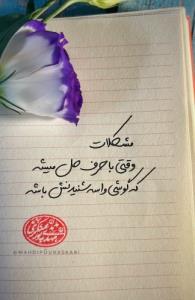 مشکلات
وقتی با حرف حل میشه
که گوشی واسه شنیدنش باشه
@MAHDIPOURASKARI